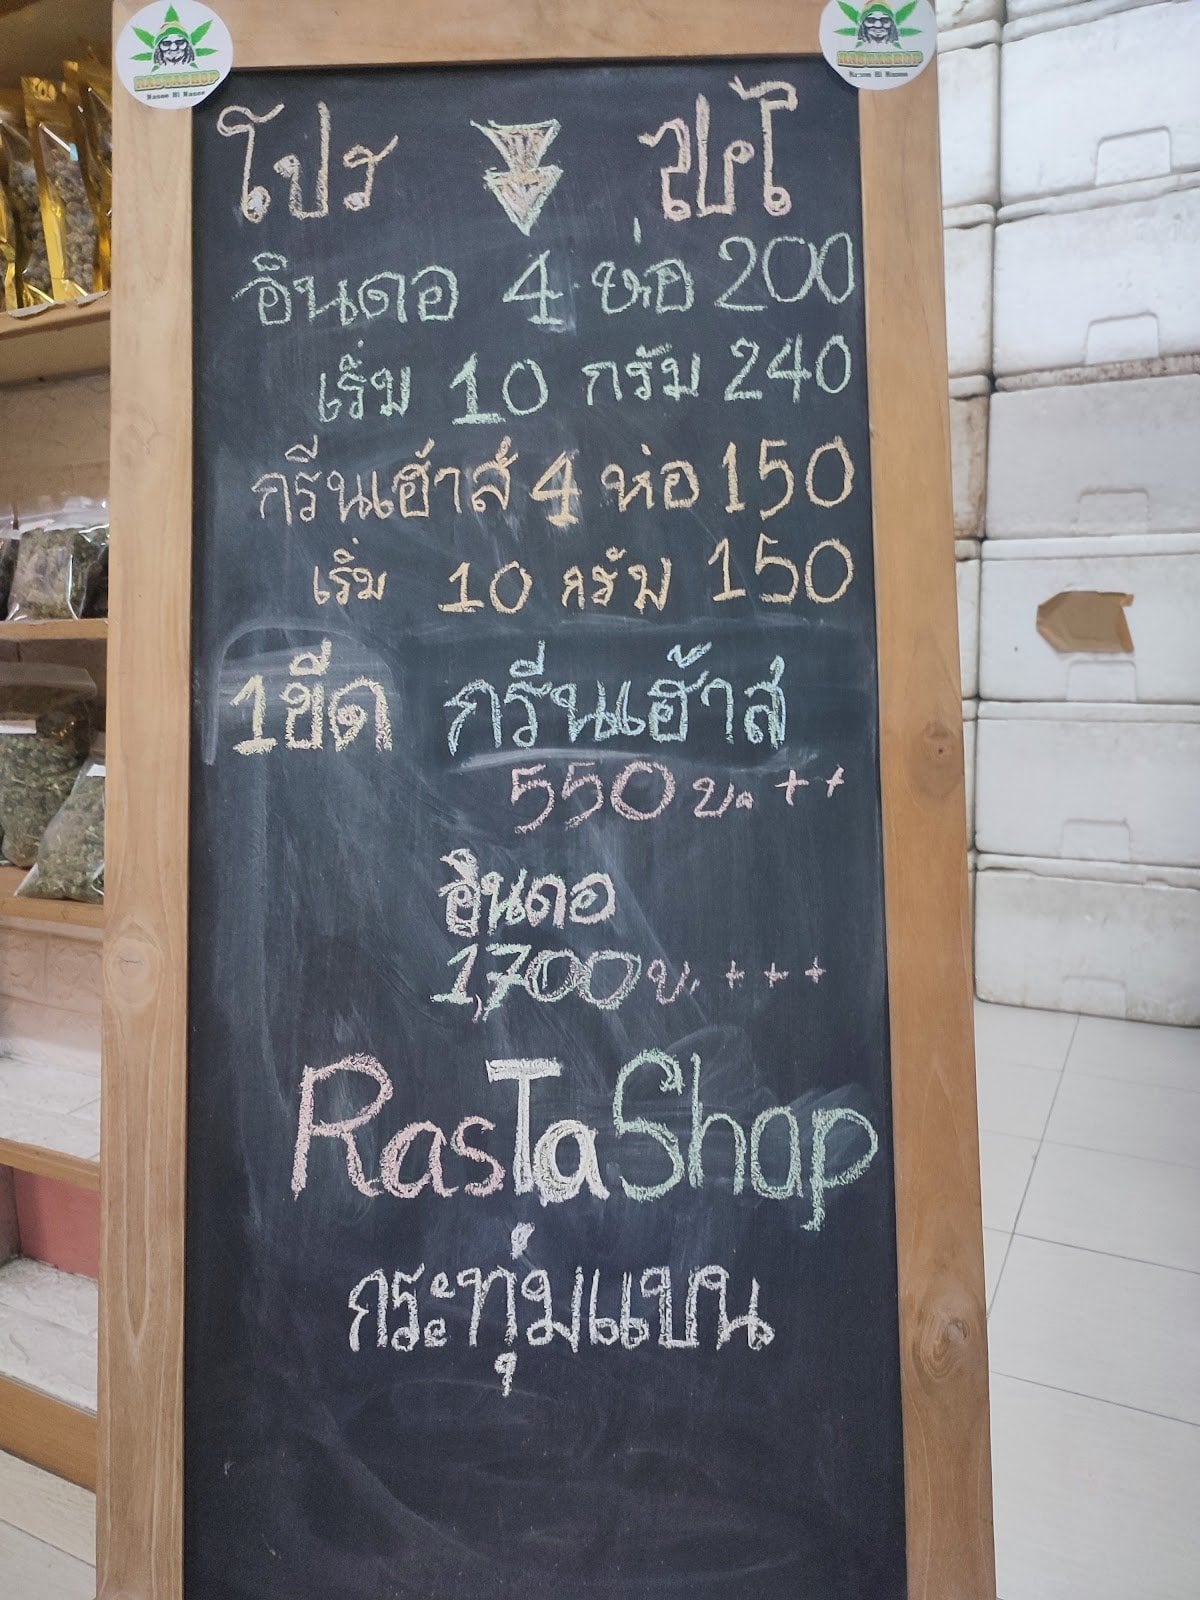 RASTASHOP
RASTASHOP
โปร
อินดอ 4 ห่อ 200
เริ่ม 10 กรัม 240
กรีนเฮ้าส์ 4 ห่อ 150
เริ่ม 10 กรัม 150
1ขีด กรีนเฮ้าส
550 บ. ++
อินดอ
1,700 บ. +++
RasTaShop
กระทุ่มแบน